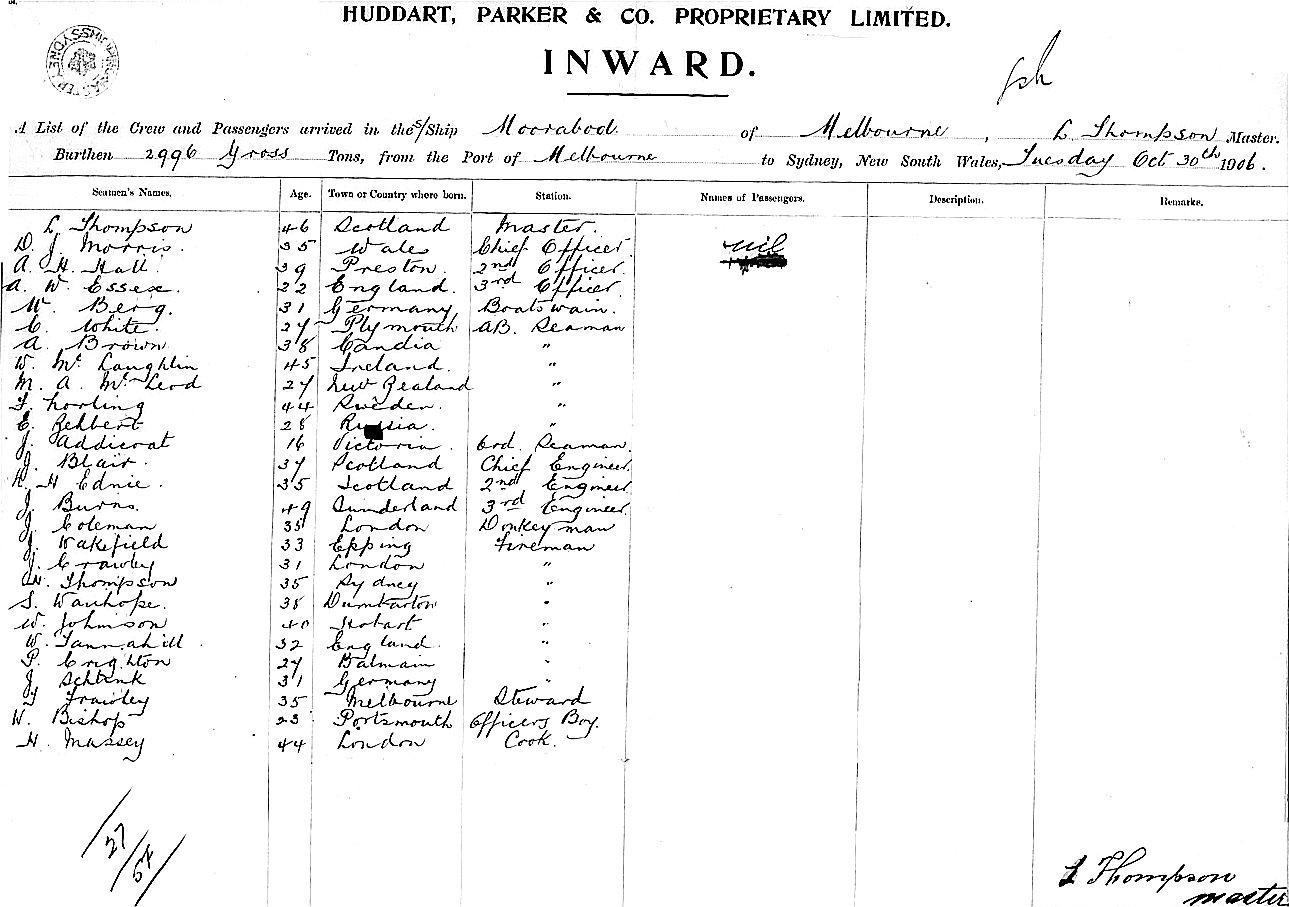 HUDDART, PARKER & CO. PROPRIETARY LIMITED.
INWARD.
A List of the Crew and Passengers arrived in the S/Ship Moorabool of Melbourne, L Thompson Master.
Burthen 2996 Gross Tons, from the Port of Melbourne to Sydney, New South Wales, Tuesday Oct 30th 1906.
Seamen's Names. Age. Town or Country where born. Station. Names of Passengers. Description. Remarks.
L Thompson 46 Scotland Master. nil
D. J. Morris. 35 Wales Chief Officer
A. H. Hall. 39 Preston. 2nd Officer.
A. W. Essex. 22 England. 3rd Officer.
W. Berg. 31 Germany Boatswain.
C. White. 27 Plymouth AB. Seaman
A. Brown 38 Candia "
W. Mc Laughlin 45 Ireland. "
M. A. McLeod 27 New Zealand "
44 Sweden. "
E. Rehbert 28 Russia. "
J. Addicoat 16 Victoria. Ord. Seaman.
J. Blair. 37 Scotland Chief Engineer
H. Ednie. 35 Scotland 2nd Engineer
J. Burns. 49 Sunderland 3rd Engineer
J. Coleman 35 London Donkeyman
J. Wakefield 33 Epping Fireman
J. Crawley 31 London "
W. Thompson 35 Sydney "
S. Wauhope. 38 Dumbarton "
W. Johnson 40 Hobart "
W. Tannahill 32 England. "
P. Crighton 27 Balmain "
J. Schlink 31 Germany "
Frawley 35 Melbourne Steward
W. Bishop 23 Portsmouth Officers Boy.
H. Massey 44 London Cook.
27/54
L Thompson
master